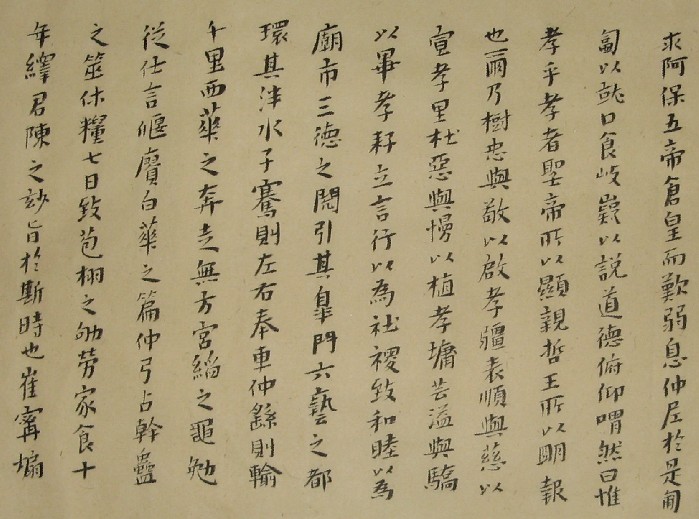 求阿保五帝倉皇而歎弱息仲尼於是匍
匐以就口食岐嶷以說道德俯仰喟然曰惟
孝乎孝者聖帝所以顯親哲王所以明報
也爾乃樹忠與敬以啟孝疆表順與慈以
宣孝里杜惡與慢以植孝墉芸溢與驕
以畢孝耔立言行以為社稷致和睦以為
廟市三德之閱引其皐門六藝之都
環其泮水子騫則左右奉車仲繇則輸
千里西華之奔走無方宮縚之黽勉
從仕言偃賡白華之篇仲弓占幹蠱
之筮休糧七日致苞栩之劬勞家食十
年繹君陳之玅旨於斯時也崔甯